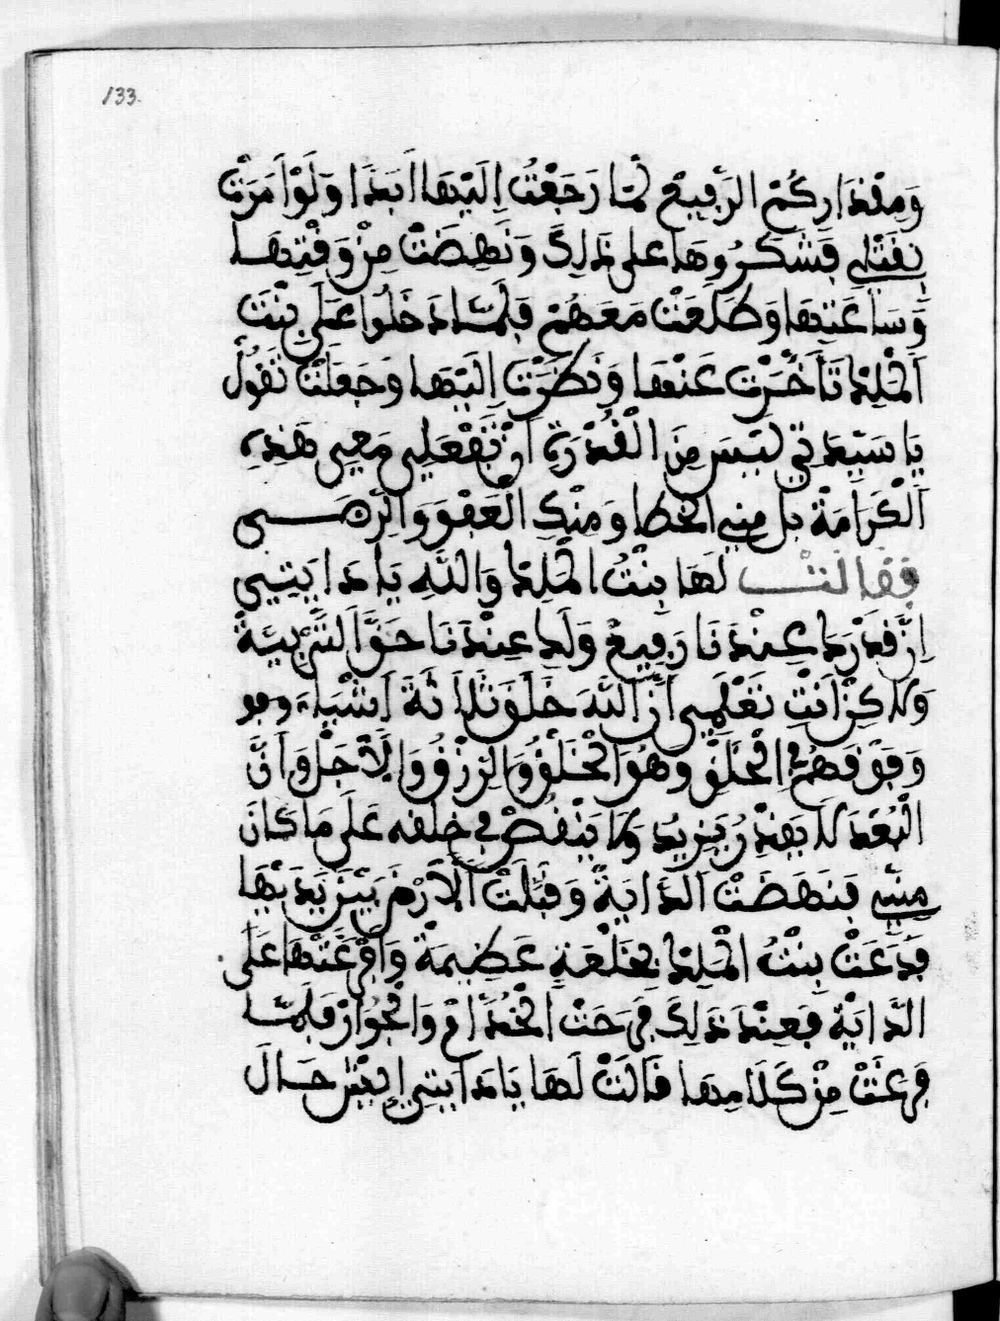 133.
وَمِقْدَارِكُمْ الرَّفِيعْ لَمَّا رَجَعْتُ اِلَيْهَا اَبَدَا وَلَوْ اَمَرَتْ
بِقَتْلِي فَشَكَرُوهَا على ذالِكَ وَنَهِضَتْ مِنْ وَقْتِهَا
وَسَاعَتِهَا وَطَلَعَتْ مَعَهُمْ فَلَمَّا دَخَلُوا عَلَى بِنْتِ
اَلْمَلِكْ تَأَخَّرَتْ عَنْهَا وَنَظَرَتْ اِلَيْهَا وَجَعَلَتْ تَقُولُ
يَا سَيِّدَتِي لَيْسَ مِنَ الْقُدْرَةِ اَنْ تَفْعَلِي مَعِي هَذِهِ
اَلْكَرَامَةْ بل مِنِّي الخطا وَمِنْكِ الْعَفْوَ وَالرِّضَى
فقالت لَهَا بِنْتُ الْمَلِكْ وَاللَّهِ يَا دَايَتِي
اِنَّ قَدْرَكِ عِنْدَنَا رَفِيعْ وَلَكِ عِنْدَنَا حَقَّ التَّرْبِيَةْ
وَلَاكِنْ اَنْتِ تَعْلَمِي اَنَّ اللَّهَ خَلَقَ ثَلَاثَةَ اَشْيَاءَ وهو
وَفَوْقَهُمْ فِي الْخَلْقِ وَهُوَ الْخَلْقُ وَالرِّزْقُ وَالْاَجَلْ وَاَنَّ
الْعَبْدَ لَا يَقْدِرُ يَزِيدُ وَلَا يَنْقُصْ فِي خلقه عَلَى مَا كَانَ
مِنِّي فَنَهَضَتْ الدَّايَةْ وَقَبَّلَتْ الْاَرْضَ بَيْنَ يَدَيْهَا
فَدَعَتْ بِنْتُ الْمَلِكْ بِخَلْعَةٍ عَظِيمَةْ وَاَفْرَغَتْهَا عَلَى
الدَّايَةْ فَعِنْدَ ذَلِكَ فَرِحَتْ الْخُدَّامْ وَالْجَوَارْ فَلَمَّا
فَرَغَتْ مِنْ كَلَامِهَا قَالَتْ لَهَا يَا دَايَتِي اِيْشْ حَالَ